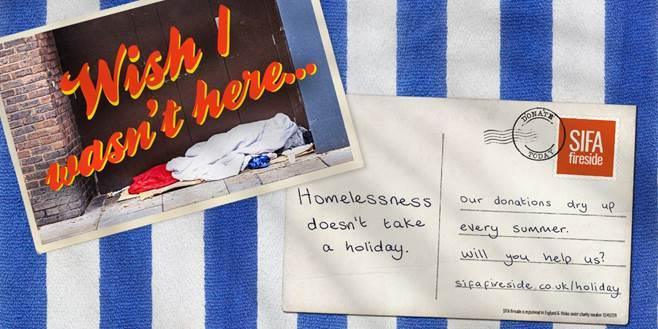 Wish I
wasn't here...
DONATE
TODAY
SIFA
fireside
Homelessness
doesn't take
a holiday.
Our donations dry up
every summer.
Will you help us?
sifafireside.co.uk/holiday